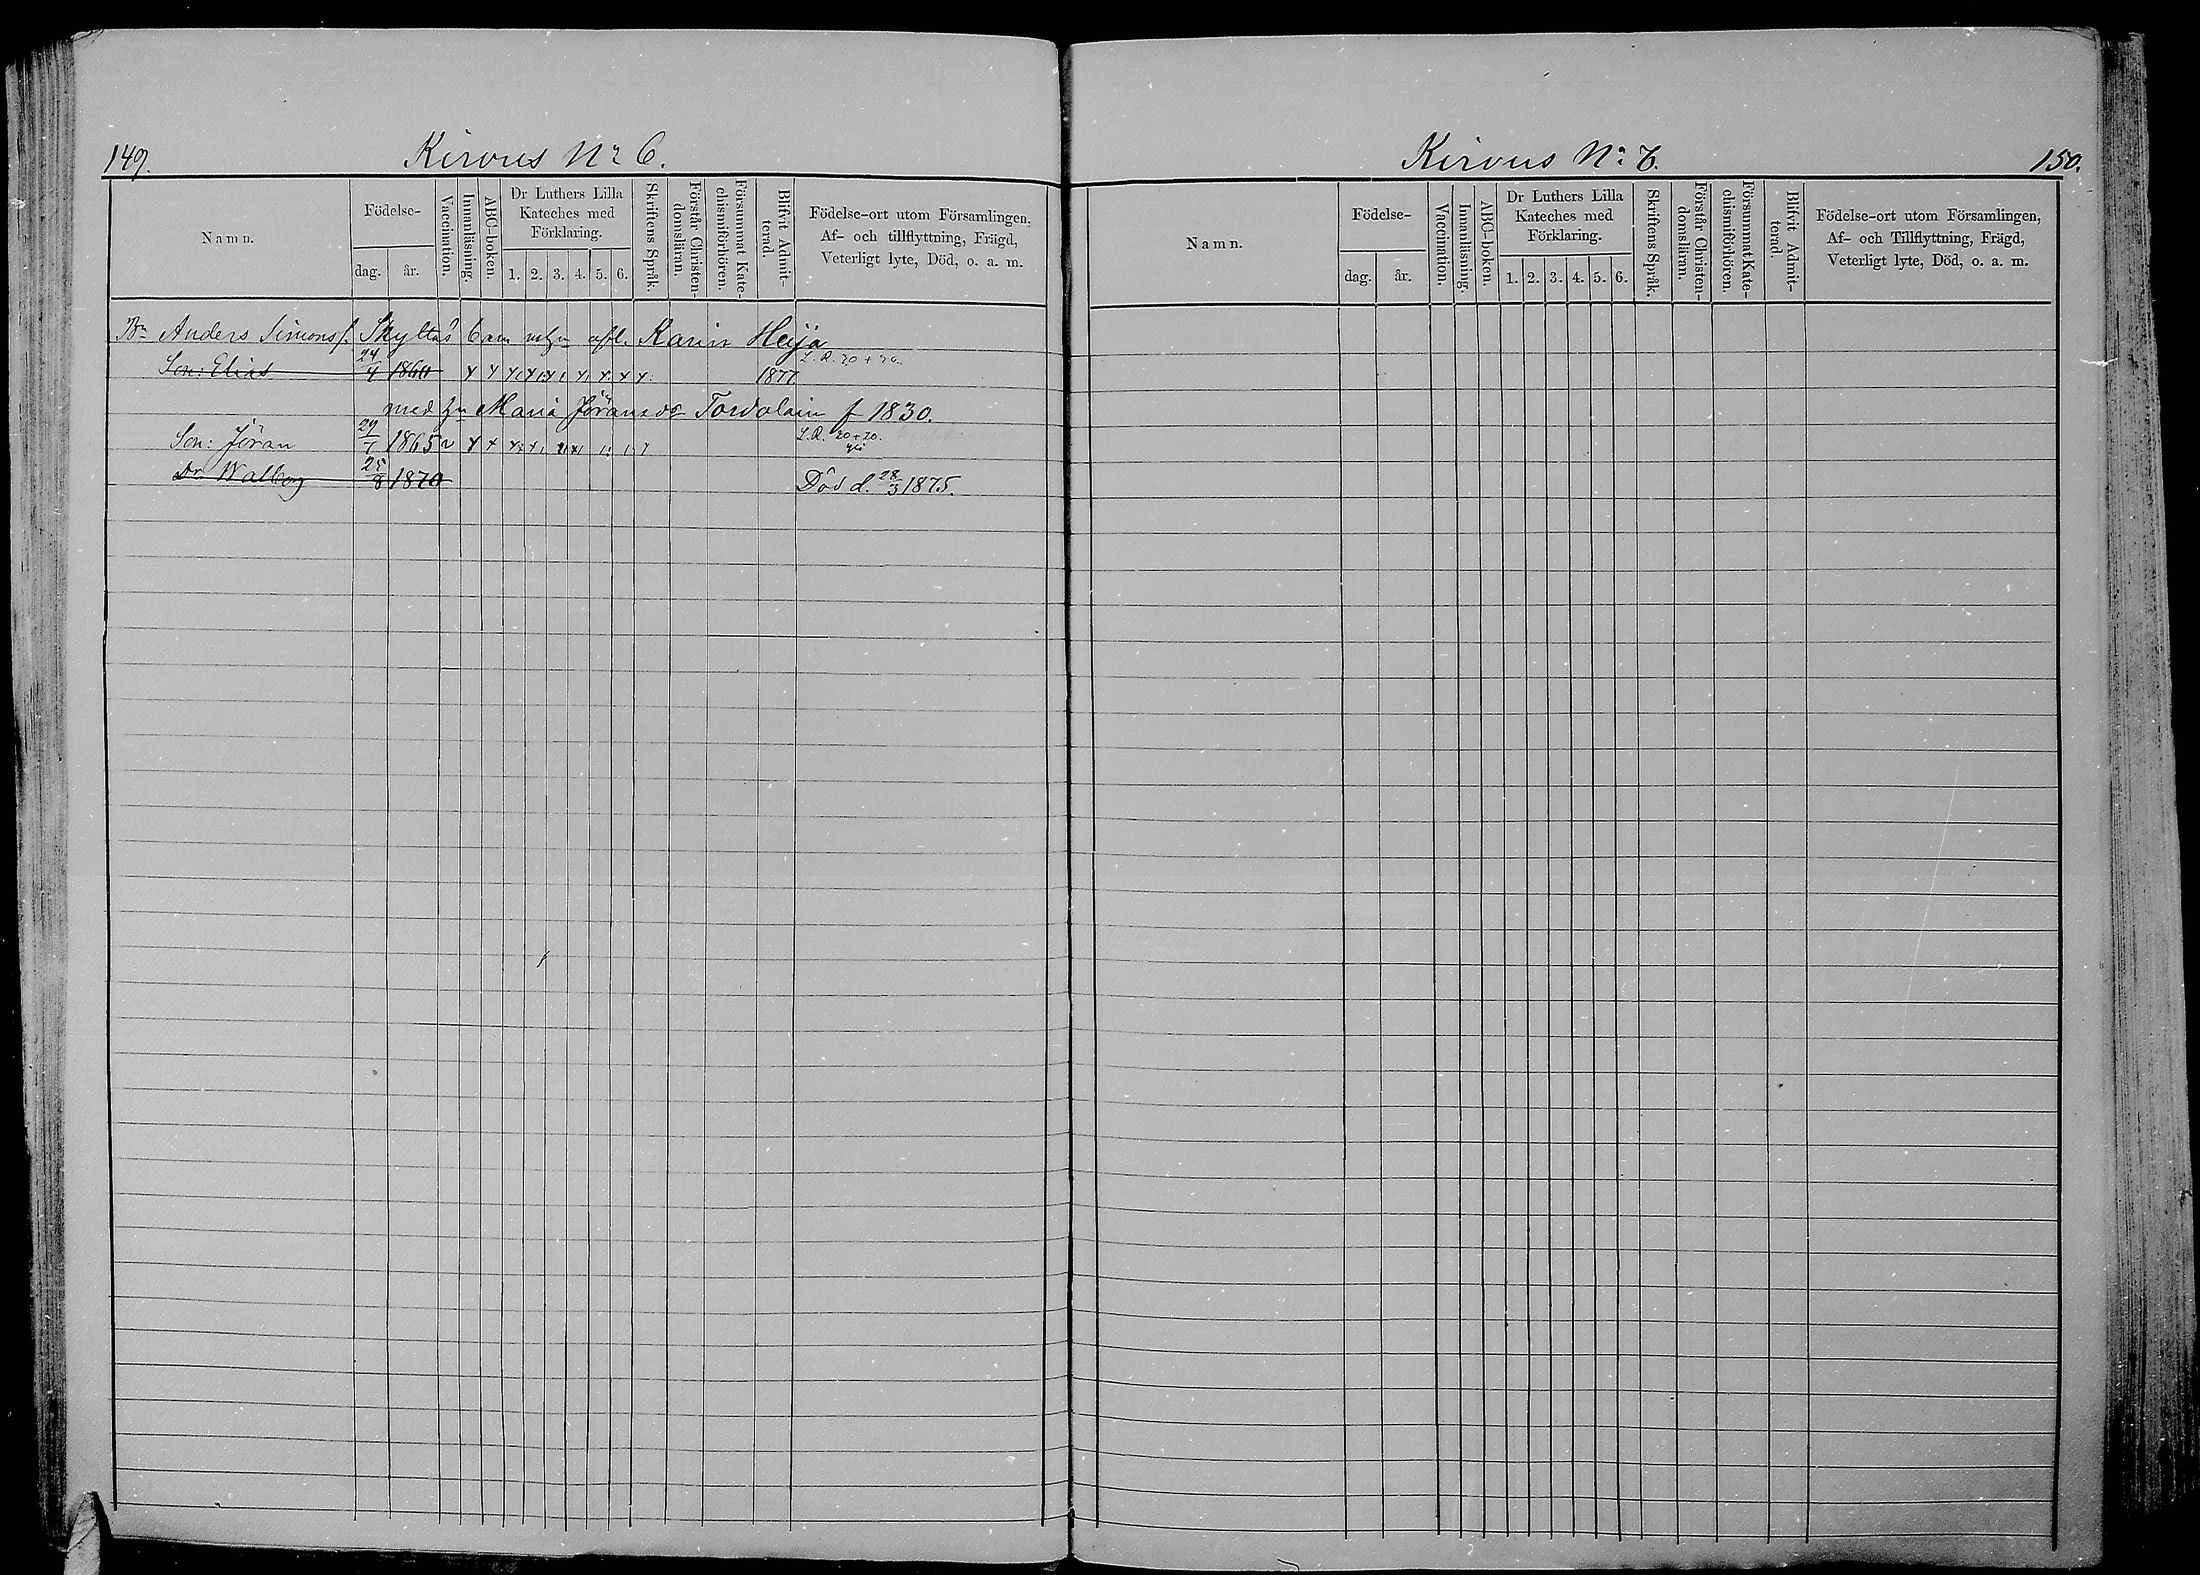 149.
Kirvus Nº 6.
Namn.
Födelse-
dag. år.
Vaccination.
Innanläsning.
ABC-boken.
Dr Luthers Lilla
Kateches med
Förklaring.
1. 2. 3. 4. 5. 6.
Skriftens Språk.
Förstår Christen-
domsläran.
Försummat Kate-
chismiförhören.
Blifvit Admit-
terad.
Födelse-ort utom Församlingen,
Af- och tillflyttning, Frägd,
Veterligt lyte, Död, o. a. m.
Bn Anders Simonss. Skyttas barn afl. Karin Heija
Son: Elias 24/4 1860 x x 1877 L.R. 20 + 20.
med Maria Jöransdr Tordolain f 1830.
Son: Jöran 29/7 1865 v x x L.R. 20 + 20.
Dr Walborg 25/8 1870 Död d. 28/3 1875.
Kirvus Nº 6.
150.
Namn.
Födelse-
dag. år.
Vaccination.
Innanläsning.
ABC-boken.
Dr Luthers Lilla
Kateches med
Förklaring.
1. 2. 3. 4. 5. 6.
Skriftens Språk.
Förstår Christen-
domsläran.
Försummat Kate-
chismiförhören.
Blifvit Admit-
terad.
Födelse-ort utom Församlingen,
Af- och Tillflyttning, Frägd,
Veterligt lyte, Död, o. a. m.